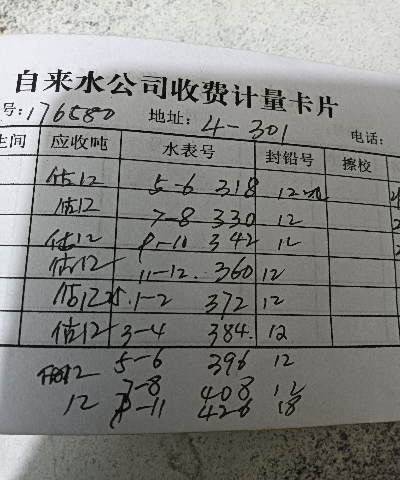 自来水公司收费计量卡片
号:176580 地址: 4-301 电话:
生间 应收吨 水表号 封铅号 擦校
估12 5-6 318 12
估12 7-8 330 12
估12 9-10 342 12
估12 11-12. 360 12
估12 1-2 372 12
估12 3-4 384. 12
12 5-6 396 12
12 7-8 408 12
-11 426 18